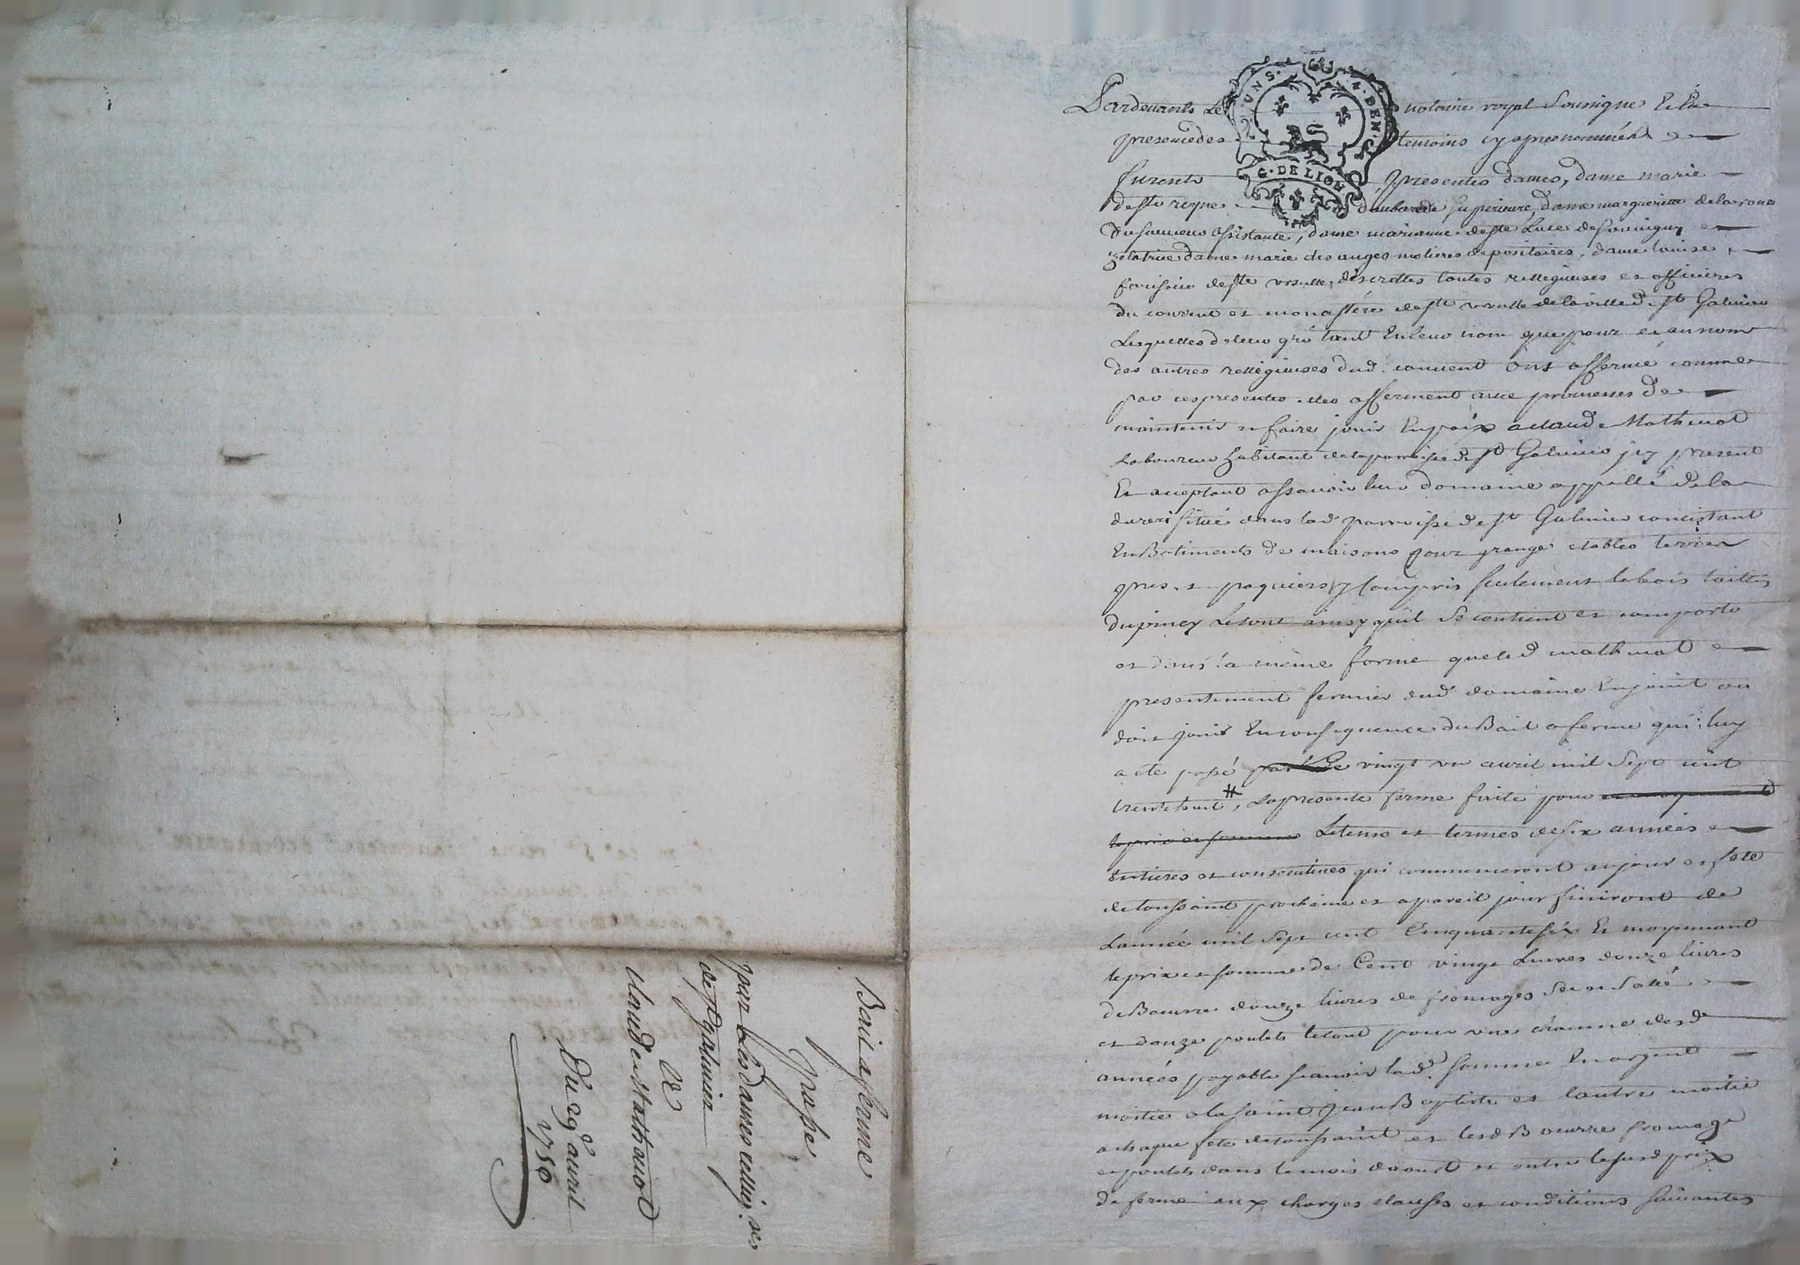 Pardevants Le notaire royal soussigné Et En
presence des temoins cy apres nommés
furents presentes dames, dame marie
de ste reyne daubarede superieure, dame margueritte de la roue
assistante, dame marianne de ste Luce de
zelatrice dame marie des anges molieres depositaires, dame louise
de ste ursulle, discrettes toutes relliegieuses et officieres
du couvent et monastére de ste ursulle de la ville de st Galmier
Lesquelles de leur gré tant En leur nom que pour et au nom
des autres relliegieuses dud. couvent Ont affermé comme
par ces presentes elles afferment avec promesses de
maintenir et faire jouir En paix a claude Mathevot
Laboureur habitant de la parroisse de st Galmier icy present
Et acceptant assavoir leur domaine appellé de la
situé dans lad. parroisse de st Galmier concistant
En Batiments de maisons cour grange etables terres
pres et paquiers y compris seulement le bois taillis
du Le tout ainsy quil se contient et comporte
et dans la même forme que led. mathevot
presentement fermier dud. domaine En jouit ou
doit jouir En consequence du Bail a ferme qui luy
a eté passé le vingt un avril mil sept cent
trente huit #, La presente ferme faite pour
Le tems et termes de six années
Entieres et consecutives qui commenceront au jour et fete
de toussaint prochaine et a pareil jour finiront de
Lannée mil sept cent Cinquante six Et moyennant
le prix et somme de Cent vingt Livres douze livres
de Beurre douze livres de fromages sec et salé
et douze poulets le tout pour une chacune desd.
années payable scavoir lad. somme En argent
moitié a la saint Jean Baptiste et lautre moitié
a chaque fete de toussaint et lesd. Beurre fromage
et poulets dans le mois daoust et outre le susd. prix
de ferme aux charges clauses et conditions suivantes
Bail a ferme
passé
par Les dames relligieuses
de st galmier
a
Claude Mathevot
Du 29e avril
1750